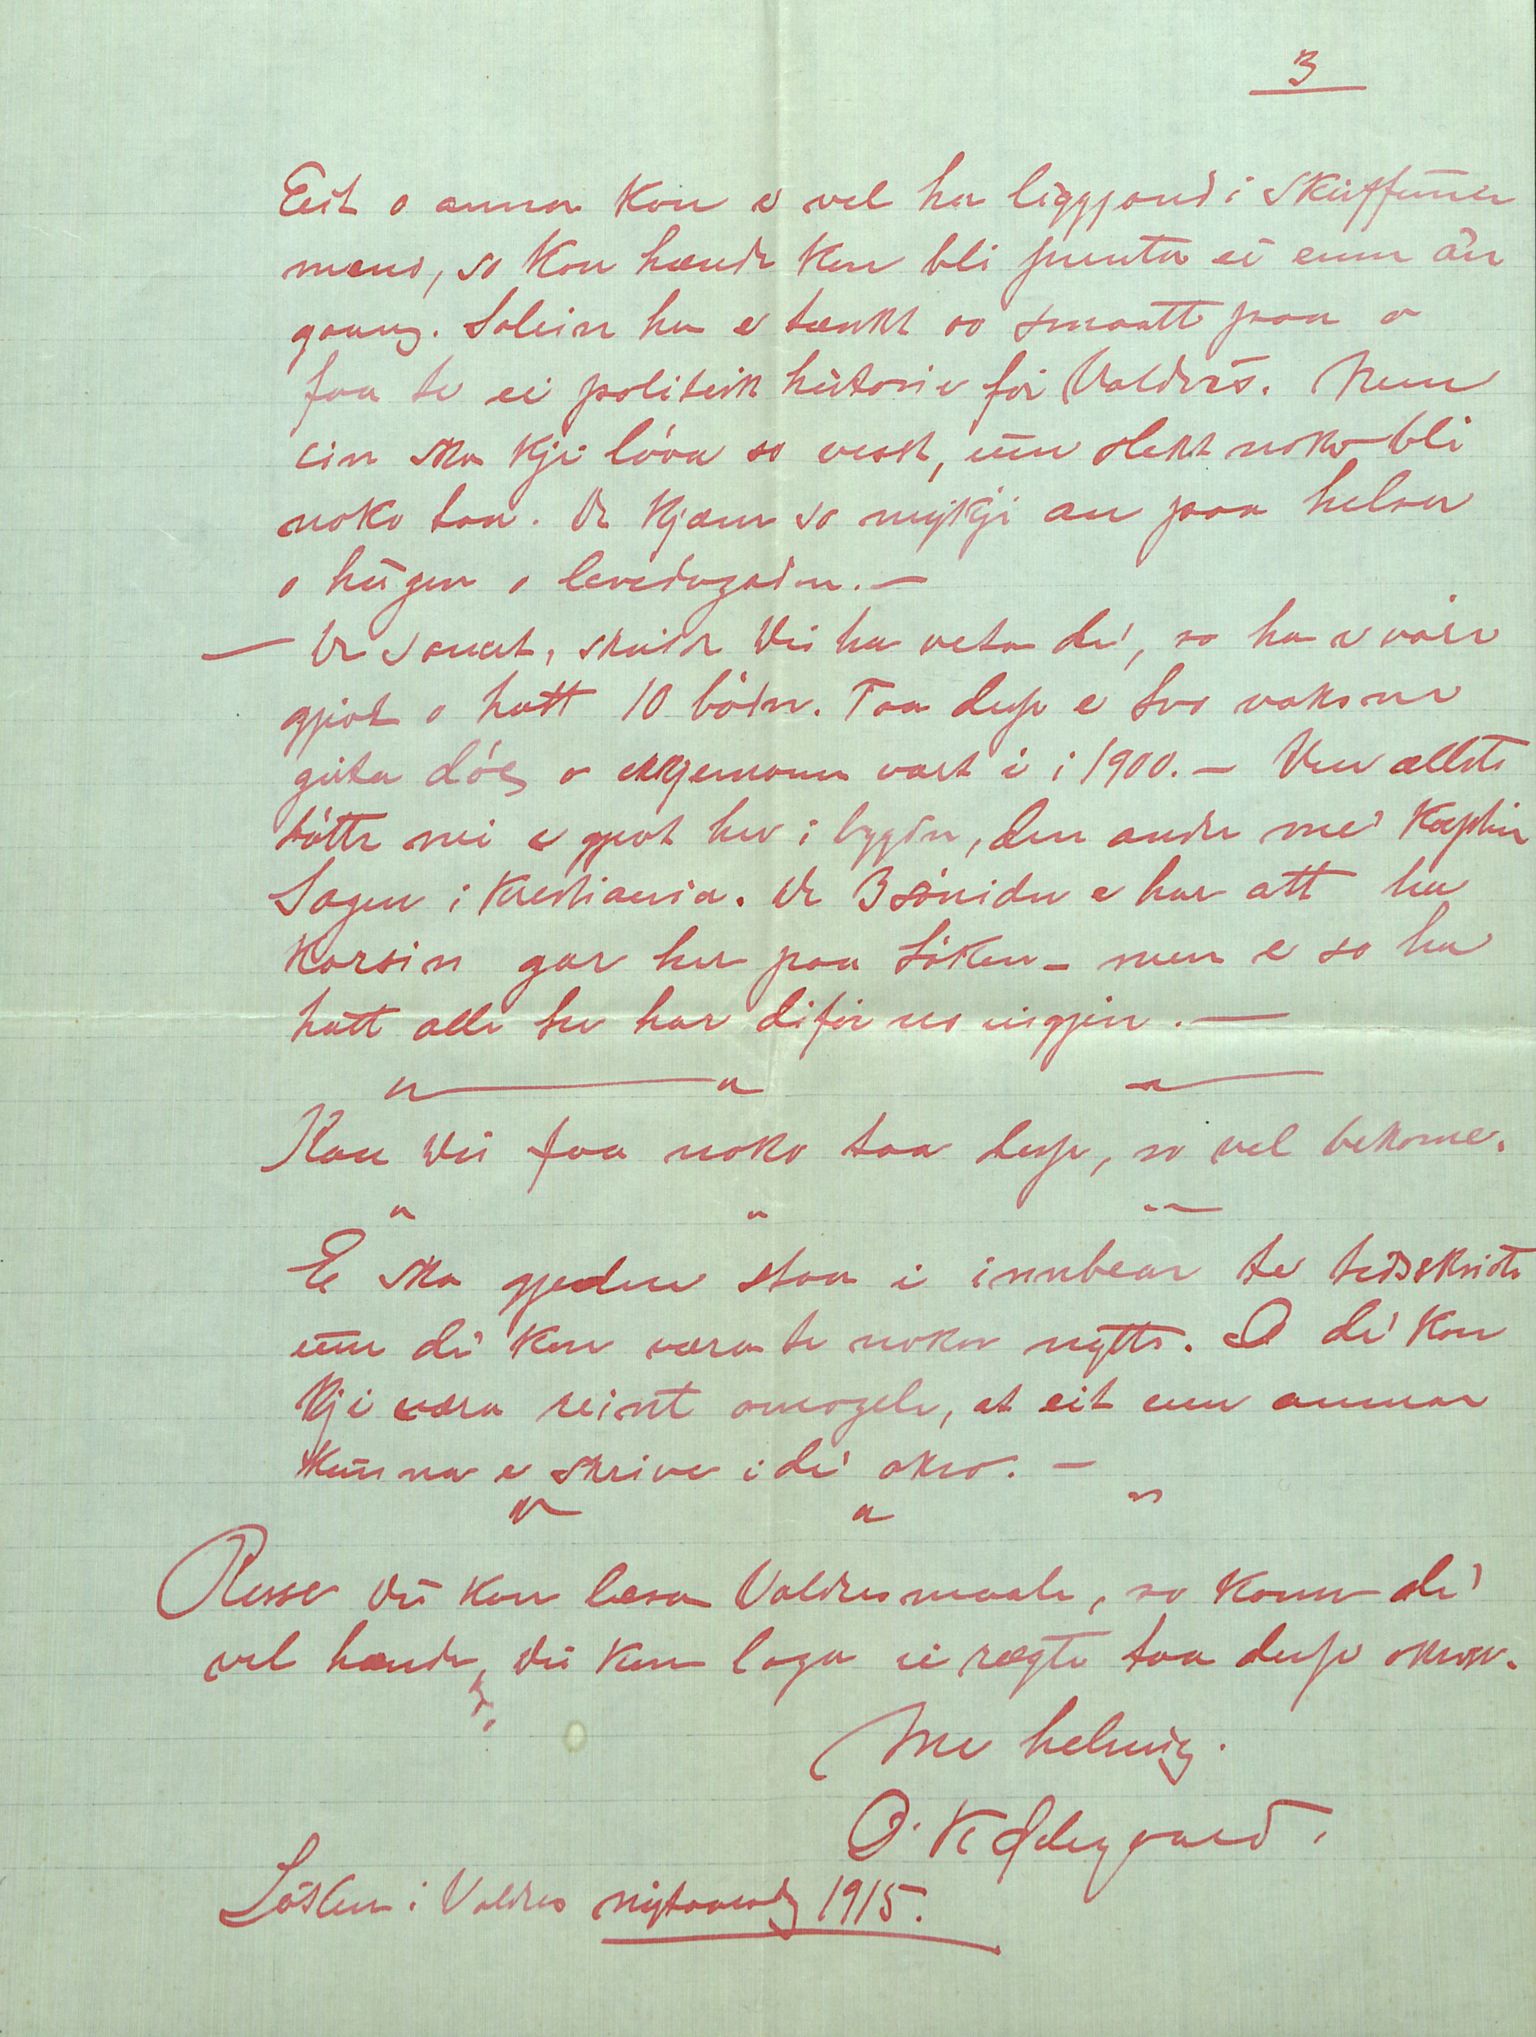 3
Eit o anna kan e vel ha liggjand i skuffune
mens, so kan hænde kan bli prenta ei enn ån
gaang. Solein ha e tænkt so smaatt paa o
faa te ei politisk historie før Valdris. Menn
ein ska kji lóva so vesst, um slekt noko bli
noko taa. De kjæm so mykji an paa helsa
o hugen o levedagadn. —
— De sannt, skulde du ha veta dé, so ha e våre
gjipt o hatt 10 bódn. Taa desse e tvo vaksne
guta dóe, o ekkjemann vart e i 1900. — Den ællste
dótte mi e gjipt her i bygdn, den andre me Kaptin
Sagen i Krestiania. De 3 sónidn e har att ha
kvar sin gar her paa Lóken — men e so ha
hatt alle her har difør no eigjin. —
" " "
Kan du faa noko taa desse, so vel bekome.
" " "
E ska gjedne staa i innbear te tidsskrifte
um dé kan væra te nokor nytte. O dé kan
kji væra reint omogele, at eit enn annar
kunna e skrive i dé okso. —
" " "
Resse du kan læsa Valdresmaale, so kann dé
vel hænde, du kan laga ei rægle taa desse okroк.
Me helsing.
O. K. Ødegaard.
Lóken i Valdres nytaarsdag 1915.